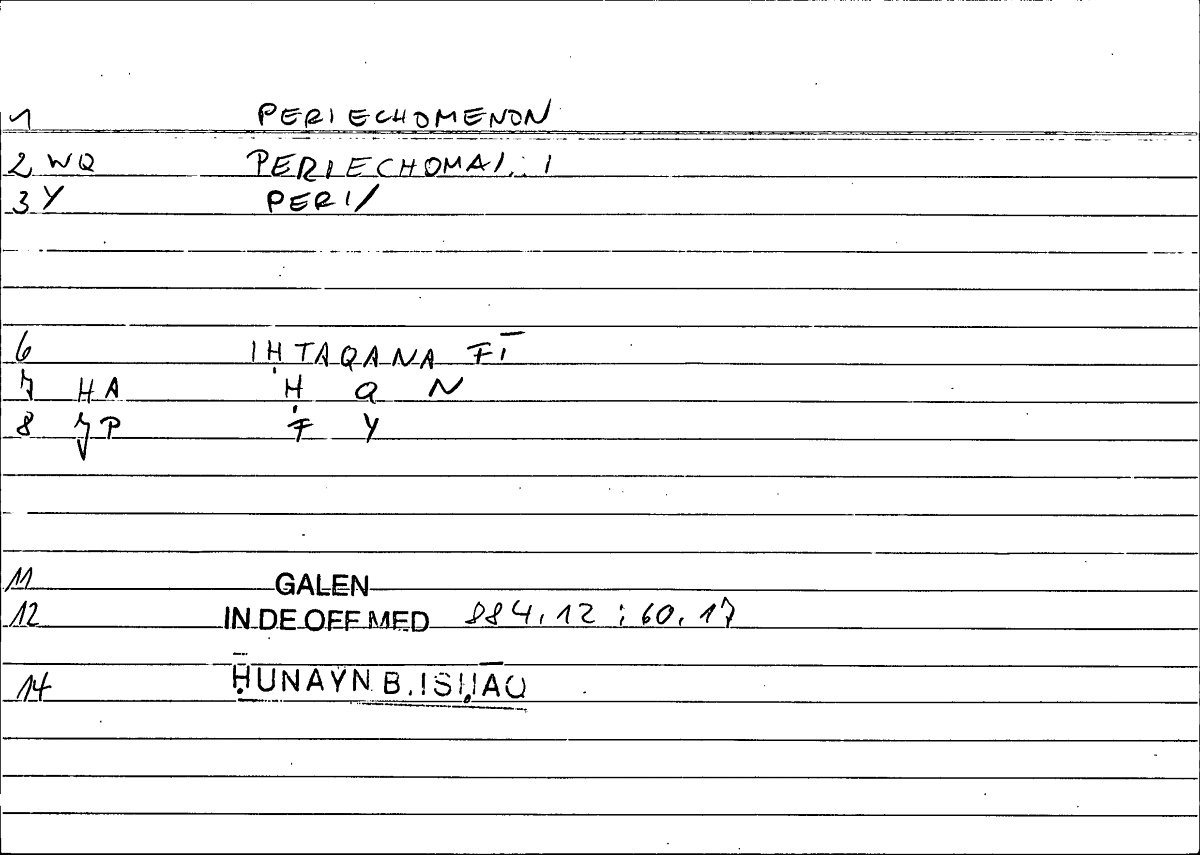 1 PERIECHOMENON
2 WQ PERIECHOMAI.: 1
3 Y PERI/
6 IḤTAQANA FĪ
7 HA Ḥ Q N
8 JP F Y
11 GALEN
12 IN DE OFF MED 884,12 ; 60,17
14 ḤUNAYN B.ISḤĀQ